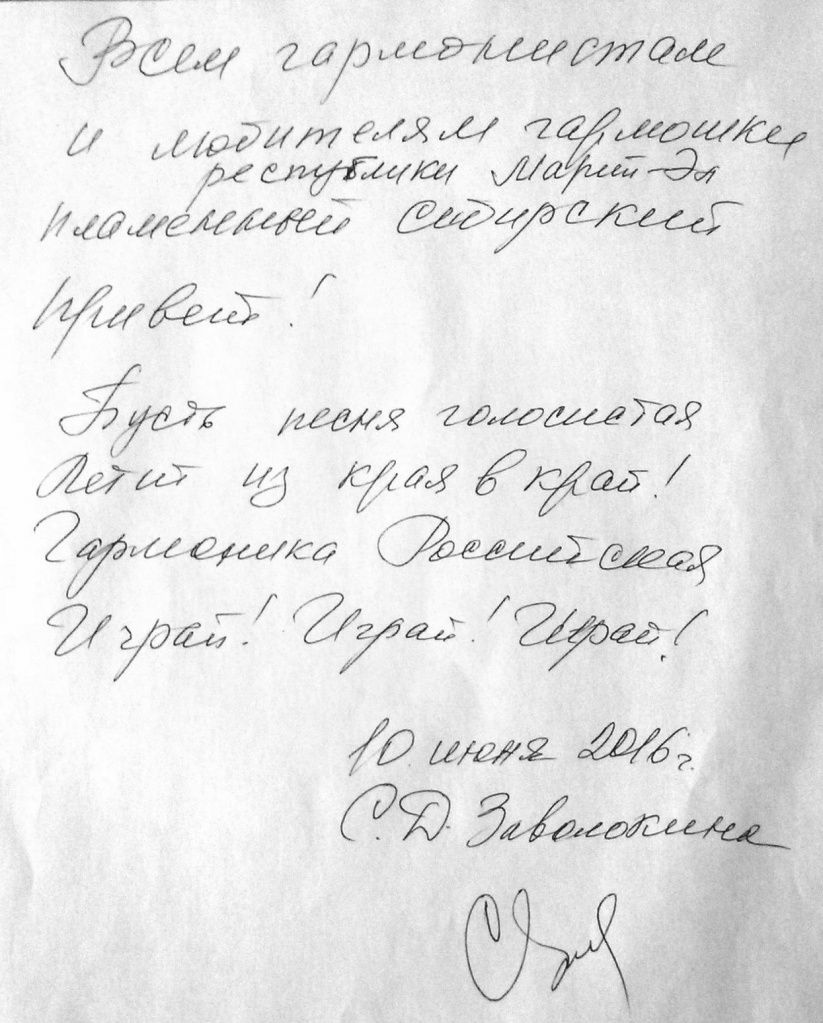 Всем гармонистам
и любителям гармошки
республики Марий-Эл
пламенный сибирский
привет!
Пусть песня голосистая
Летит из края в край!
Гармоника Российская
Играй! Играй! Играй!
10 июня 2016г.
С.Д. Заволокина